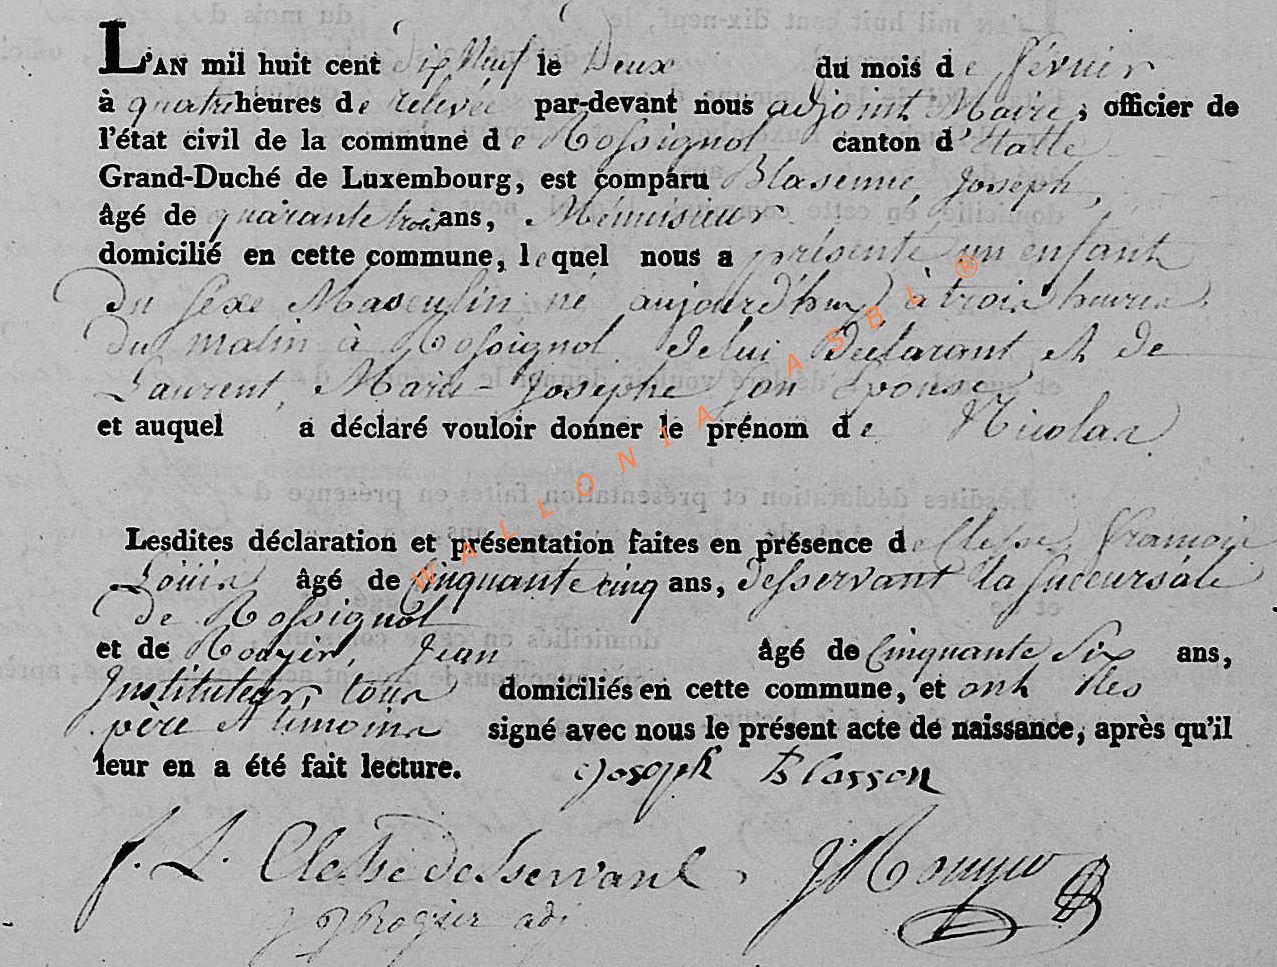 L'AN mil huit cent dix Neuf le Deux du mois de février
à quatre heures de relevée par-devant nous adjoint Maire, officier de
l'état civil de la commune de Rossignol canton d'Etalle
Grand-Duché de Luxembourg, est comparu Joseph,
âgé de quarante trois ans, Ménuisieur
domicilié en cette commune, lequel nous a présenté un enfant
du sexe Masculin né aujourd'huy à trois heures
du matin à Rossignol de lui Déclarant et de
Laurent, Marie-Josephe son Epouse
et auquel a déclaré vouloir donner le prénom de Nicolas
Lesdites déclaration et présentation faites en présence de Clesse, François
Louis âgé de cinquante cinq ans, desservant la succursale
de Rossignol
et de Jean âgé de Cinquante Six ans,
Instituteur, tous domiciliés en cette commune, et ont les
père et témoins signé avec nous le présent acte de naissance, après qu'il
leur en a été fait lecture. Joseph Blasson
f. L. Clesse desservant
J Rozier adj
WALLONIA ASBL ®